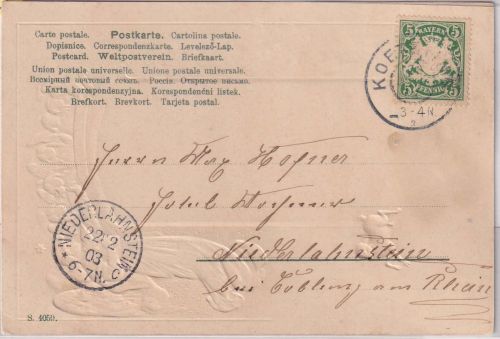 Carte postale. Postkarte. Cartolina postale.
Dopisnice. Correspondenzkarte. Levelező-Lap.
Postcard. Weltpostverein. Briefkaart.
Union postale universelle. Unione postale universale.
Всемірный почтовый союзъ. Россія. Открытое письмо.
Karta korespondencyjna. Korespondenční lístek.
Brefkort. Brevkort. Tarjeta postal.
5 BAYERN 5
5 PFENNIG 5
KOE
3-4 N
Herrn Max Hofner
Hotel
Niederlahnstein
bei Coblenz am Rhein
NIEDERLAHNSTEIN
22.2
03
6-7N.
S. 4059.